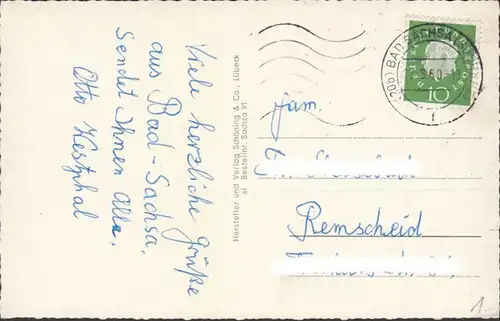 Viele herzliche Grüße
aus Bad-Sachsa,
Sendet Ihnen Alle,
Otto Westphal
Hersteller und Verlag Schöning & Co., Lübeck
si Bestellnr. Sachsa 91
(20b) BAD SACHSA
60
10
Fam.
Remscheid
1